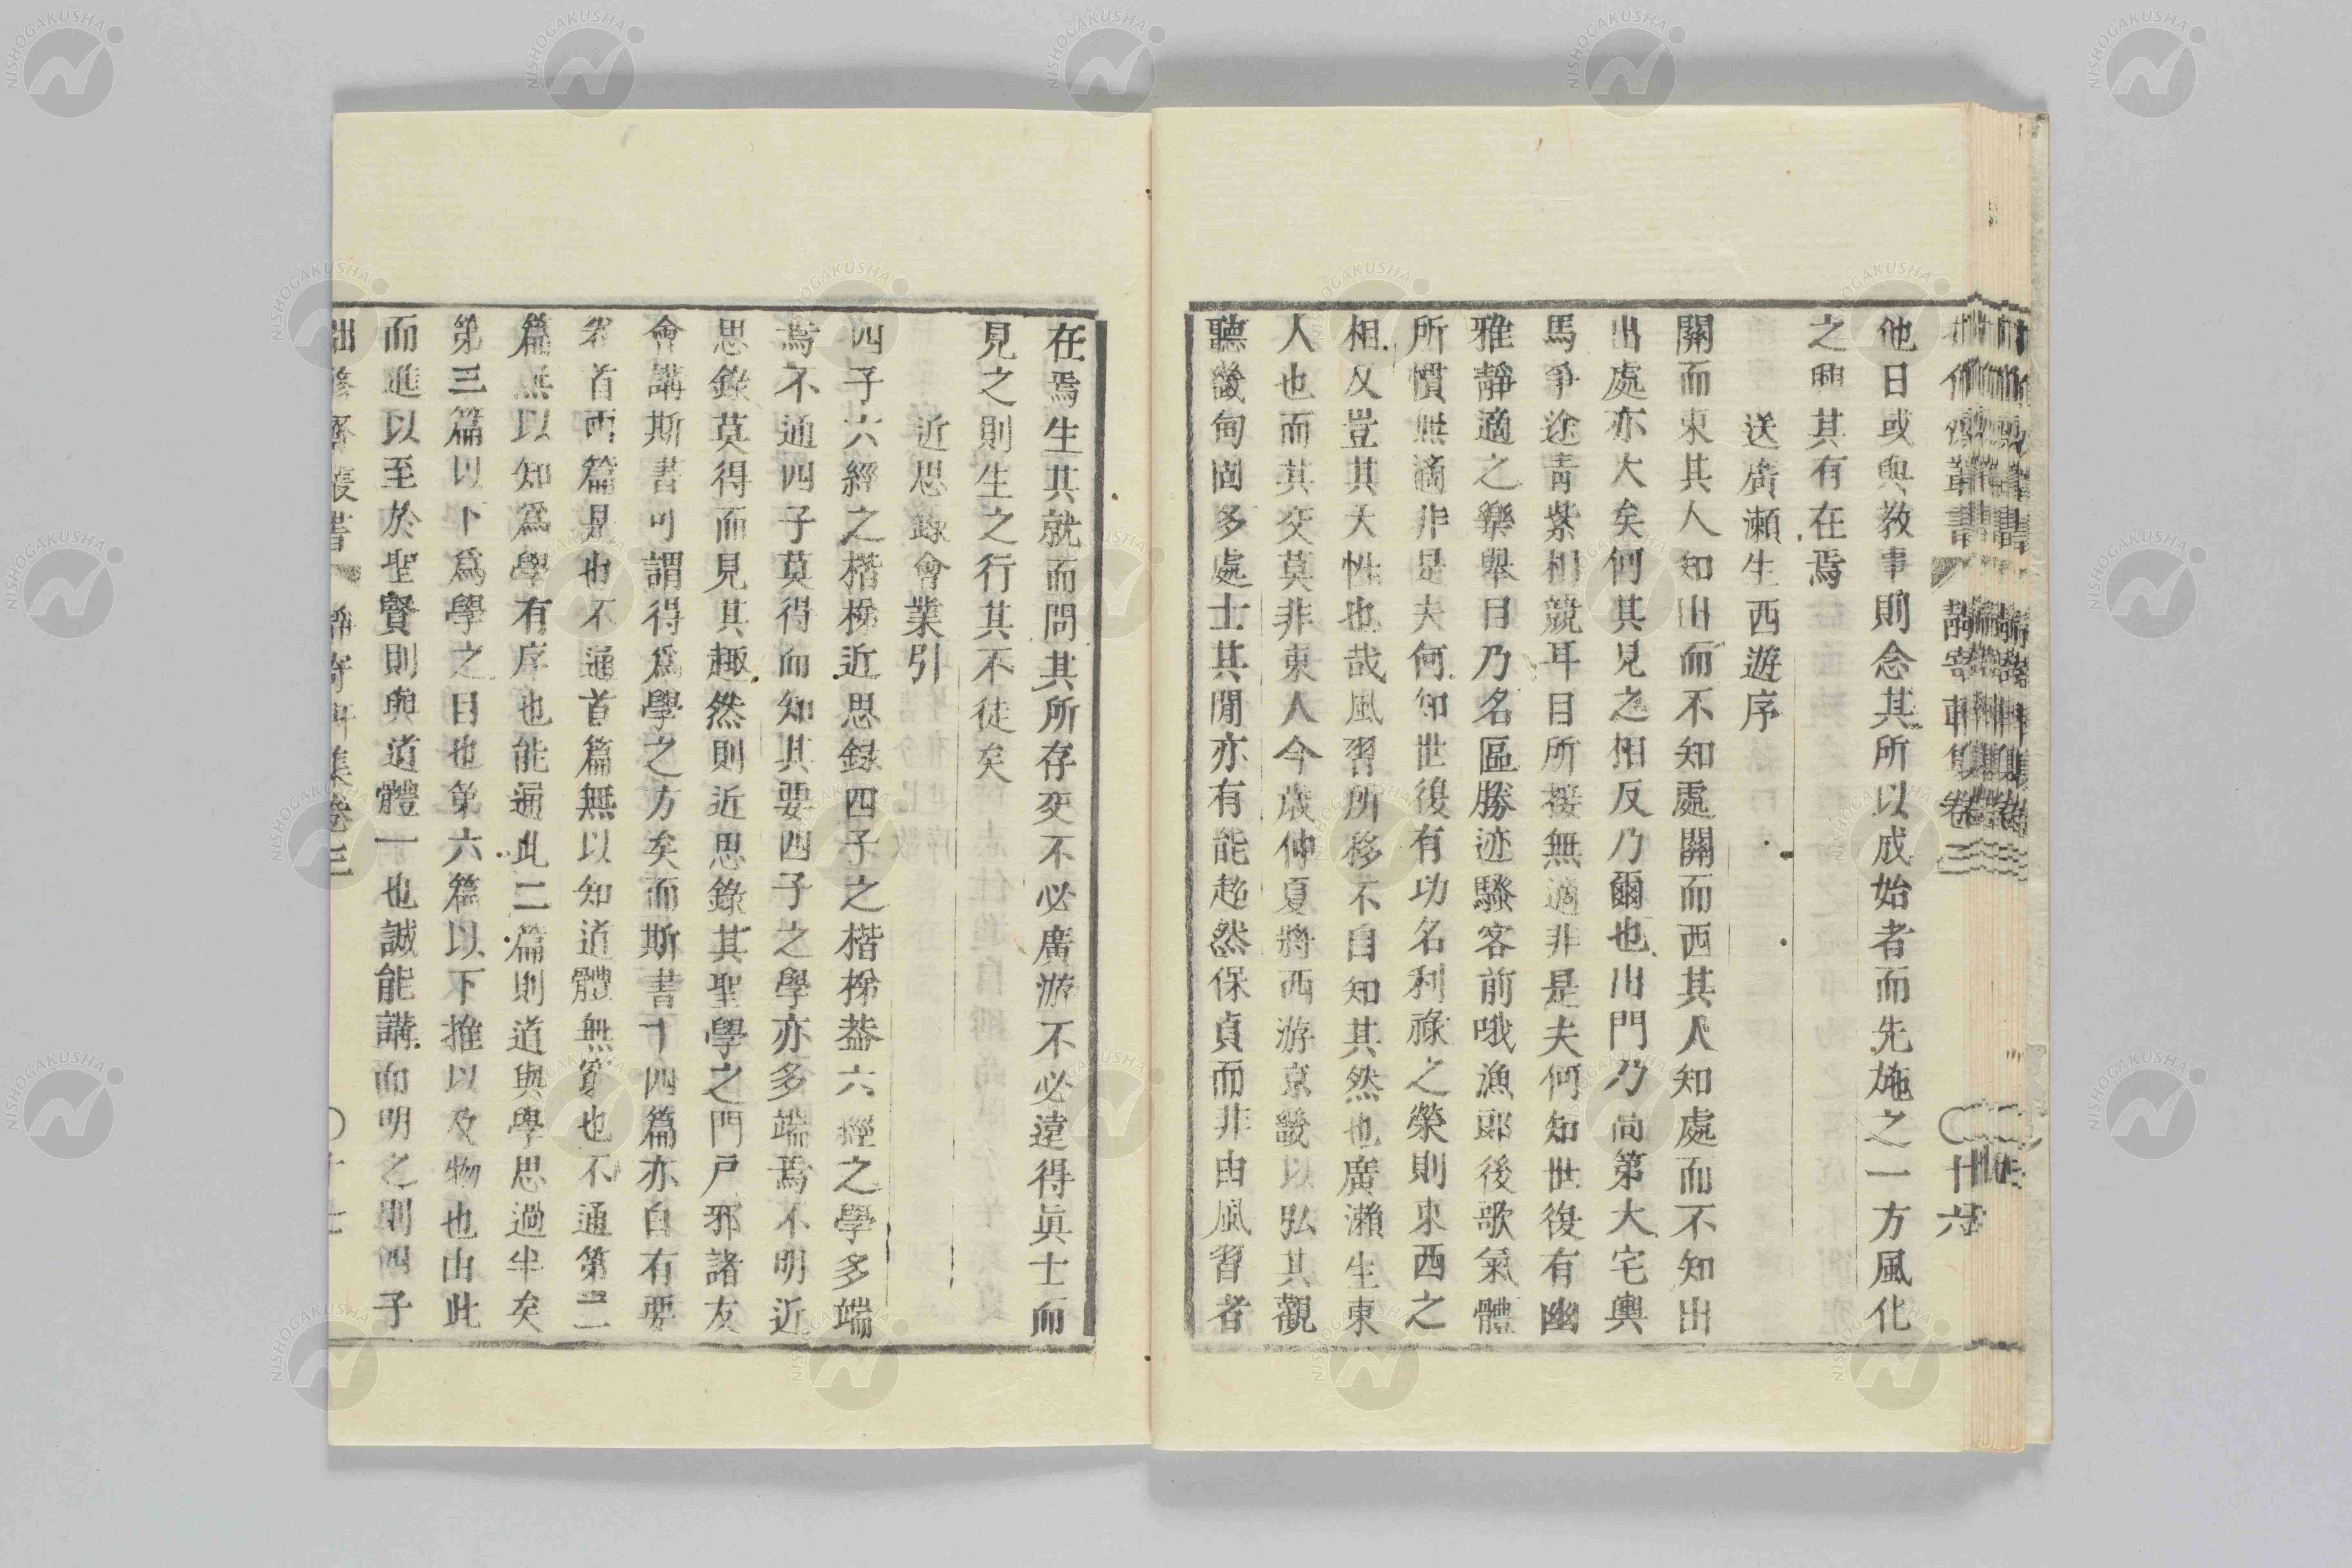 他日或與教事則念其所以成始者而先施之一方風化
之興其有在焉
送廣瀨生西遊序
關而東其人知出而不知處關而西其人知處而不知出
出處亦大矣何其見之相反乃爾也出門乃高第大宅輿
馬爭途靑紫相競耳目所接無適非是夫何知世復有幽
雅靜適之樂舉目乃名區勝迹騷客前哦漁郎後歌氣體
所慣無適非是夫何知世復有功名利祿之榮則東西之
相反豈其天性也哉風習所移不自知其然也廣瀨生東
人也而其交莫非東人今歲仲夏將西游京畿以弘其觀
聽畿甸固多處士其閒亦有能超然保貞而非由風習者
在焉生其就而問其所存交不必廣游不必遠得眞士而
見之則生之行其不徒矣
近思錄會業引
四子六經之楷梯近思録四子之楷梯葢六經之學多端
焉不通四子莫得而知其要四子之學亦多端焉不明近
思錄莫得而見其趣然則近思錄其聖學之門戸邪諸友
會講斯書可謂得爲學之方矣而斯書十四篇亦自有要
首兩篇是也不通首篇無以知道體無窮也不通第二
篇無以知爲學有序也能通此二篇則道與學思過半矣
第三篇以下爲學之目也第六篇以下推以及物也由此
而進以至於聖賢則與道體一也誠能講而明之則四子